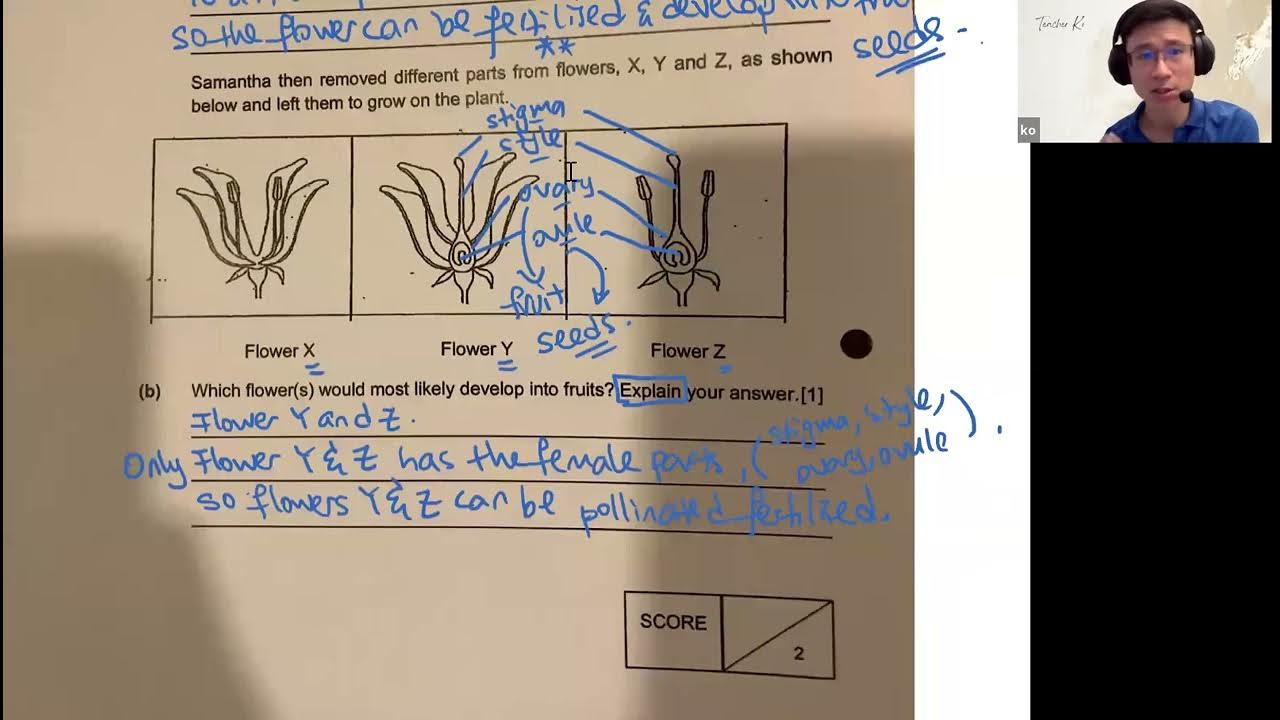 so the flower can be fertilised & develop into
seeds.
**
Samantha then removed different parts from flowers, X, Y and Z, as shown
below and left them to grow on the plant.
stigma
style
ovary
ovule
fruit
seeds.
Flower X
Flower Y
Flower Z
(b) Which flower(s) would most likely develop into fruits? Explain your answer.[1]
Flower Y and Z.
Only Flower Y & Z has the female parts, (stigma, style,
ovary, ovule).
so flowers Y & Z can be pollinated fertilised.
SCORE
2
Teacher K
ko